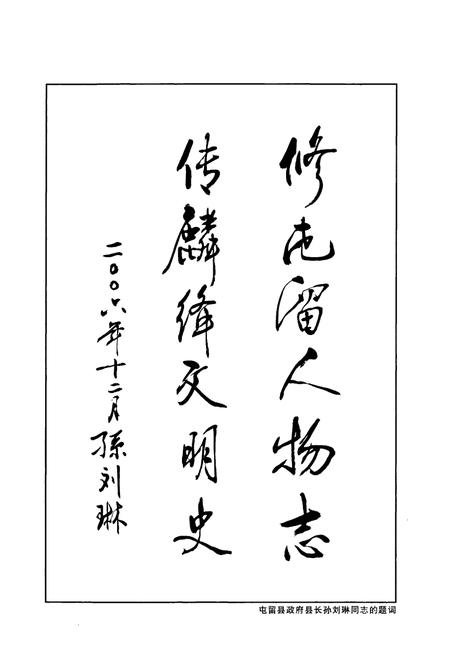 修屯留人物志
传麟绛文明史
二〇〇六年十二月 孫刘琳
屯留县政府县长孙刘琳同志的题词